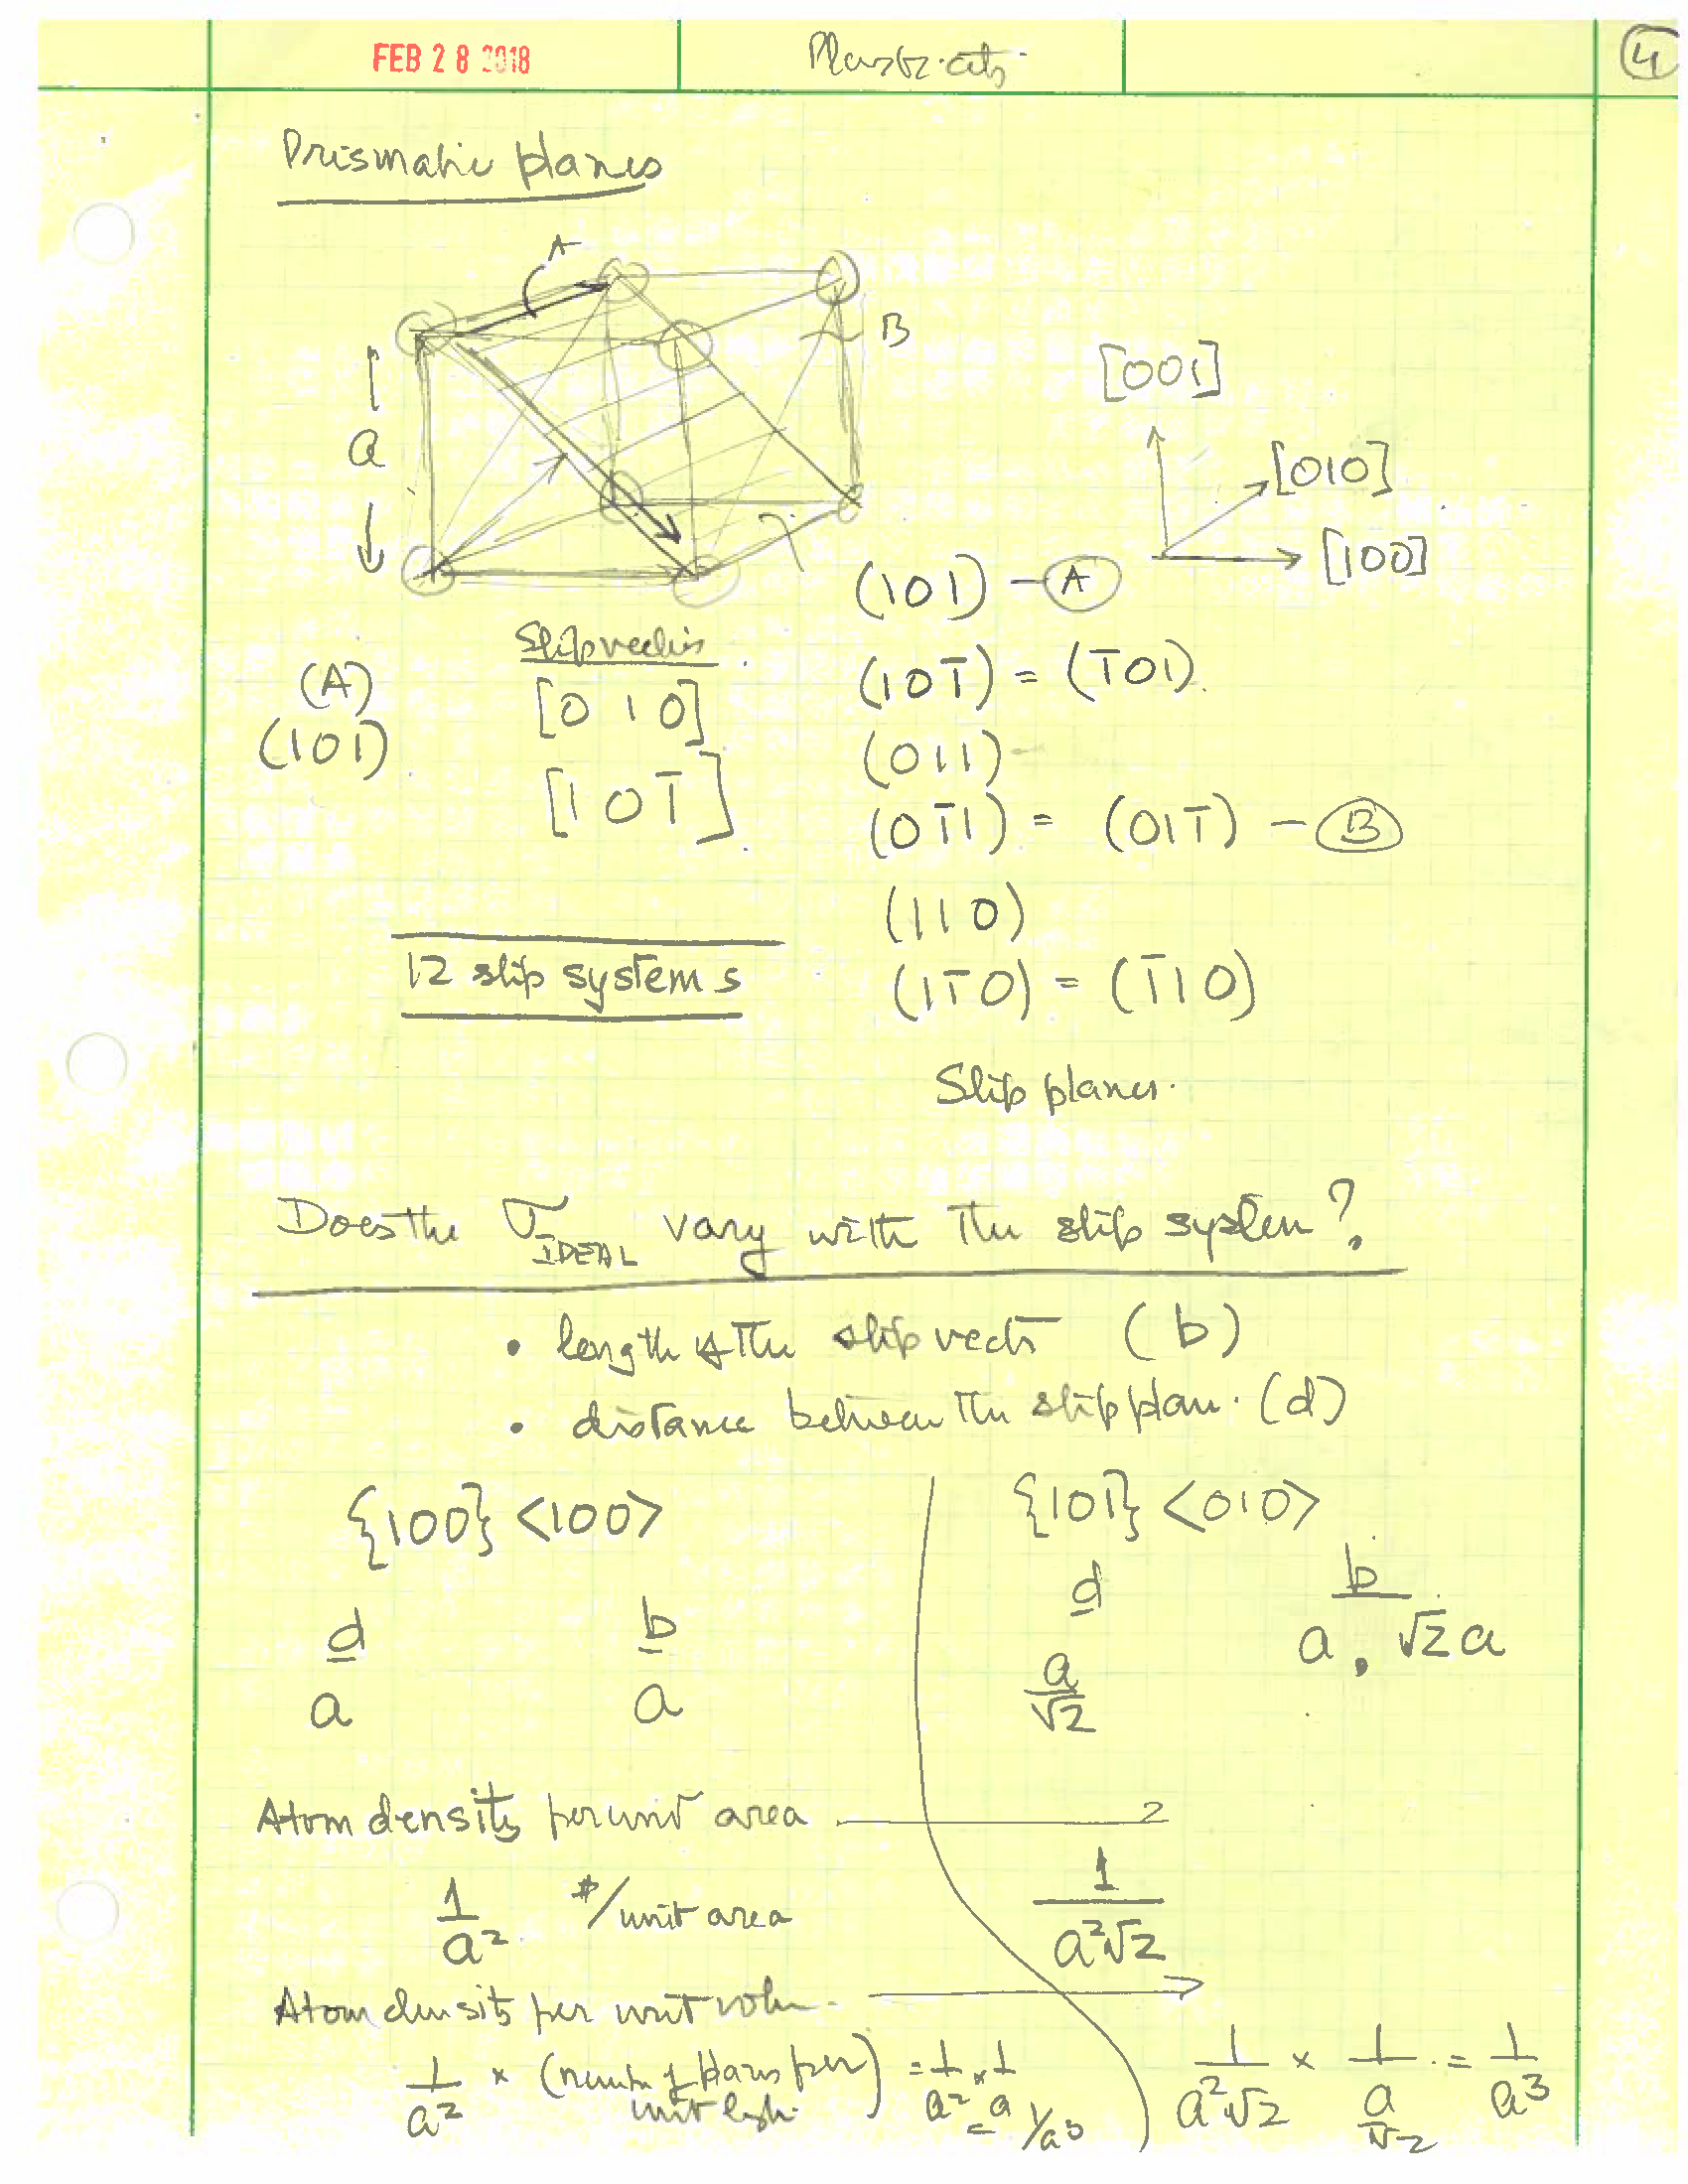 FEB 28 2018
Plasticity
4
Prismatic planes
A
B
a
[001]
[010]
[100]
(101) - A
Slip vectors
(A)
(101)
[010]
[10T̅]
(10T̅) = (T̅01)
(011)
(0T̅1) = (01T̅) - B
(110)
12 slip systems
(1T̅0) = (T̅10)
Slip planes.
Does the σ IDEAL vary with the slip system?
• length of the slip vector (b)
• distance between the slip plane. (d)
{100} <100>
{101} <010>
d b
a a
d b
a/√2 a, √2 a
Atom density per unit area
1/a² #/unit area
1/a²√2
Atom density per unit volm.
1/a² × (number of planes per unit lgth.) = 1/a² × 1/a = 1/a³
1/a²√2 × 1/(a/√2) = 1/a³